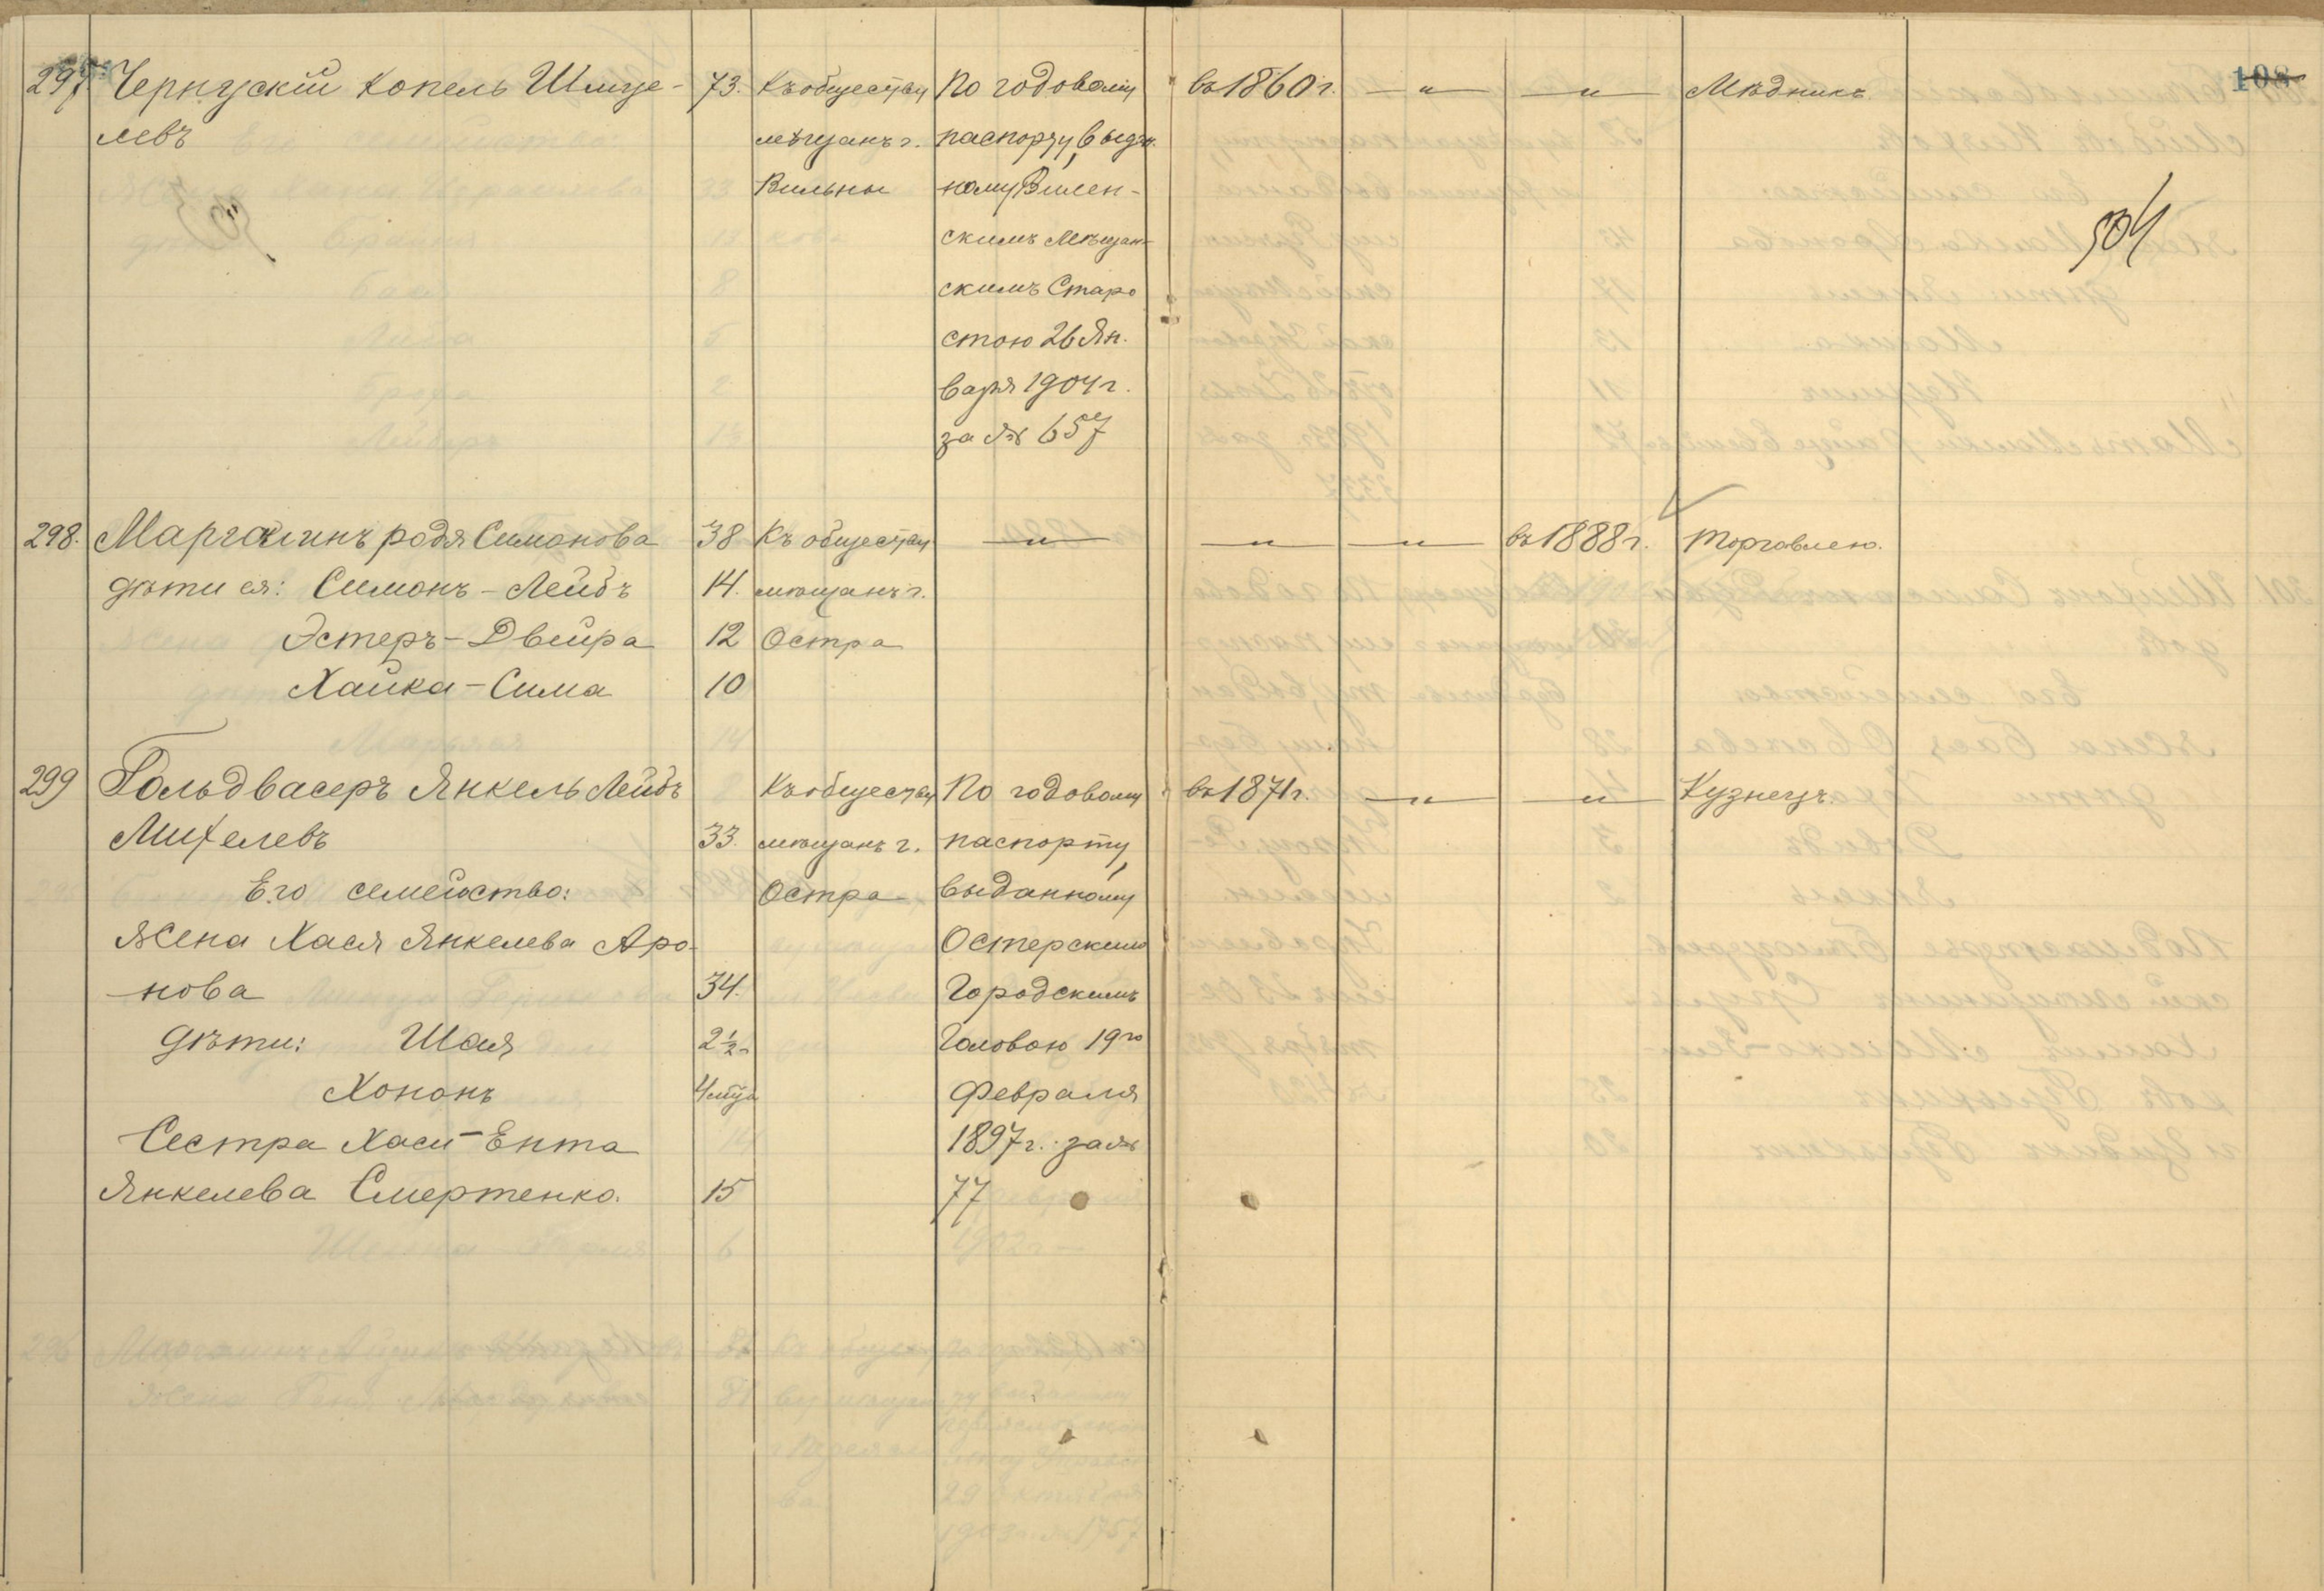 297. Чернускій Копель Шмуе- 73. Къ обществу По годовому въ 1860 г. — " — — " — Мѣдникъ 108
левъ мѣщанъ г. паспорту, выдан-
Вильны ному Вилен-
скимъ Мѣщан- 504
скимъ Старо
стою 26 Ян.
варя 1904 г.
за № 657
298. Марголинъ родя Симонова 38 Къ обществу — " — — " — — " — въ 1888 г. Торговлею.
дѣти ея: Симонъ - Лейбъ 14. мѣщанъ г.
Эстеръ - Двейра 12 Остра
Хайка - Сима 10
299 Гольдвасеръ Янкель Лейбъ Къ обществу По годовому въ 1871 г. — " — — " — Кузнецъ.
Михелевъ 33. мѣщанъ г. паспорту,
Его семейство: Остра выданному
Жена Хася Янкелева Аро- Остерскимъ
нова 34. Городскимъ
дѣти: Шая 2½ Головою 19го
Хононъ 4 мѣс. Февраля
Сестра Хаси - Ента 1897 г. за №
Янкелева Смертенко. 15 77